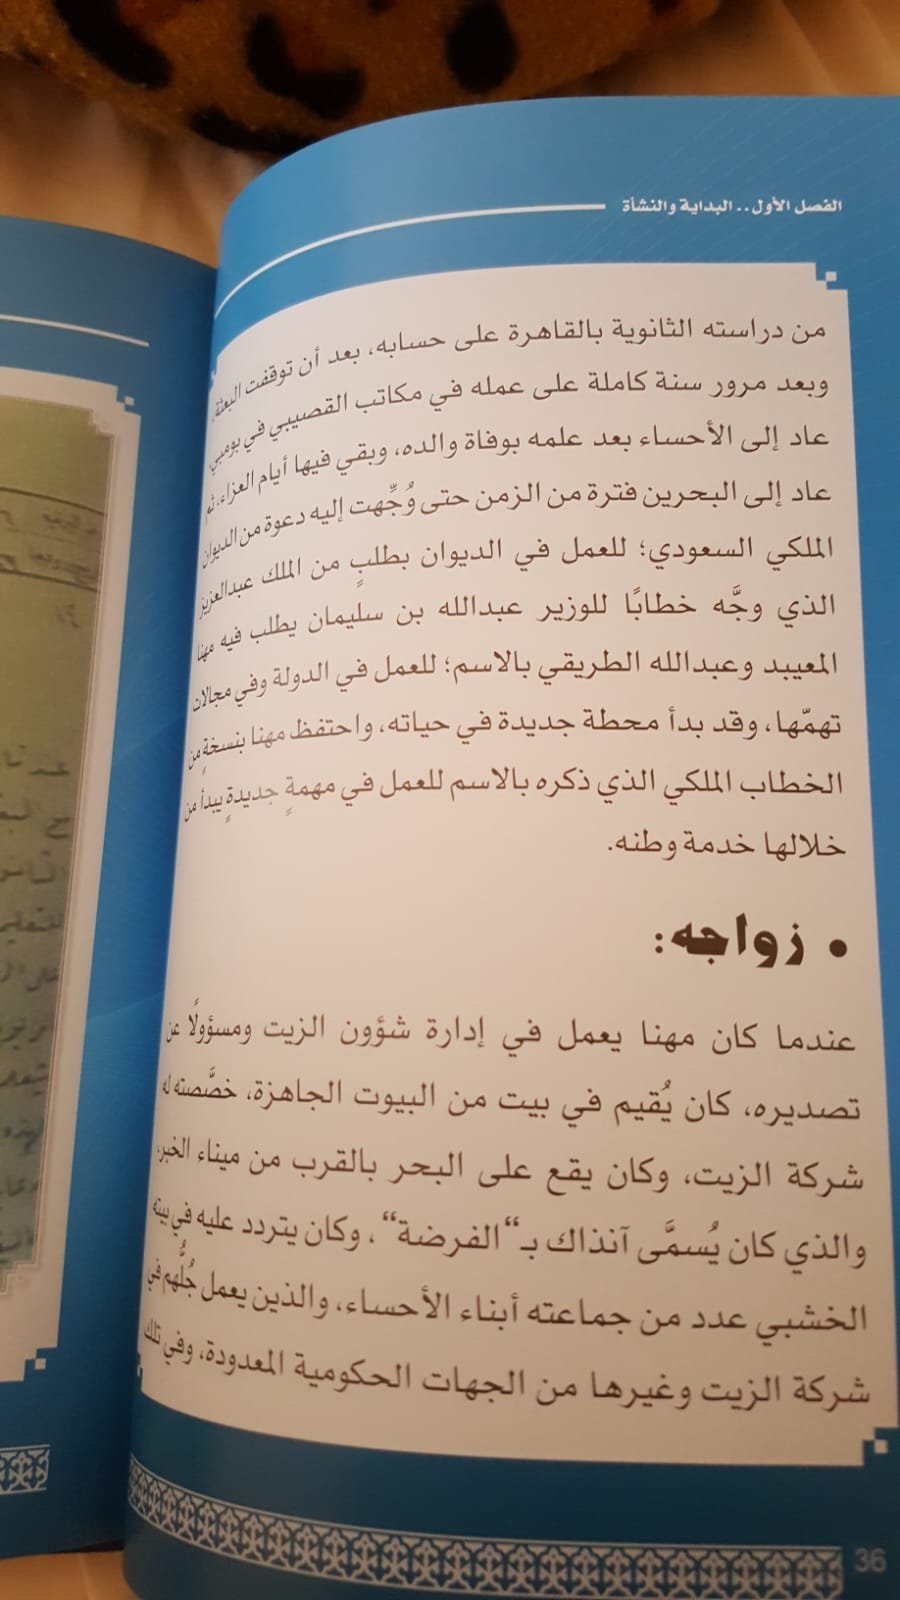 الفصل الأول.. البداية والنشأة
من دراسته الثانوية بالقاهرة على حسابه، بعد أن توقفت البعثة.
وبعد مرور سنة كاملة على عمله في مكاتب القصيبي في بومبي،
عاد إلى الأحساء بعد علمه بوفاة والده، وبقي فيها أيام العزاء، ثم
عاد إلى البحرين فترة من الزمن حتى وُجِّهت إليه دعوة من الديوان
الملكي السعودي؛ للعمل في الديوان بطلبٍ من الملك عبدالعزيز
الذي وجَّه خطابًا للوزير عبدالله بن سليمان يطلب فيه مهنا
المعيبد وعبدالله الطريقي بالاسم؛ للعمل في الدولة وفي مجالات
تهمّها، وقد بدأ محطة جديدة في حياته، واحتفظ مهنا بنسخةٍ من
الخطاب الملكي الذي ذكره بالاسم للعمل في مهمةٍ جديدةٍ يبدأ من
خلالها خدمة وطنه.
• زواجه:
عندما كان مهنا يعمل في إدارة شؤون الزيت ومسؤولًا عن
تصديره، كان يُقيم في بيت من البيوت الجاهزة، خصَّصته له
شركة الزيت، وكان يقع على البحر بالقرب من ميناء الخبر،
والذي كان يُسمَّى آنذاك بـ“الفرضة“، وكان يتردد عليه في بيته
الخشبي عدد من جماعته أبناء الأحساء، والذين يعمل جُلُّهم في
شركة الزيت وغيرها من الجهات الحكومية المعدودة، وفي تلك
36